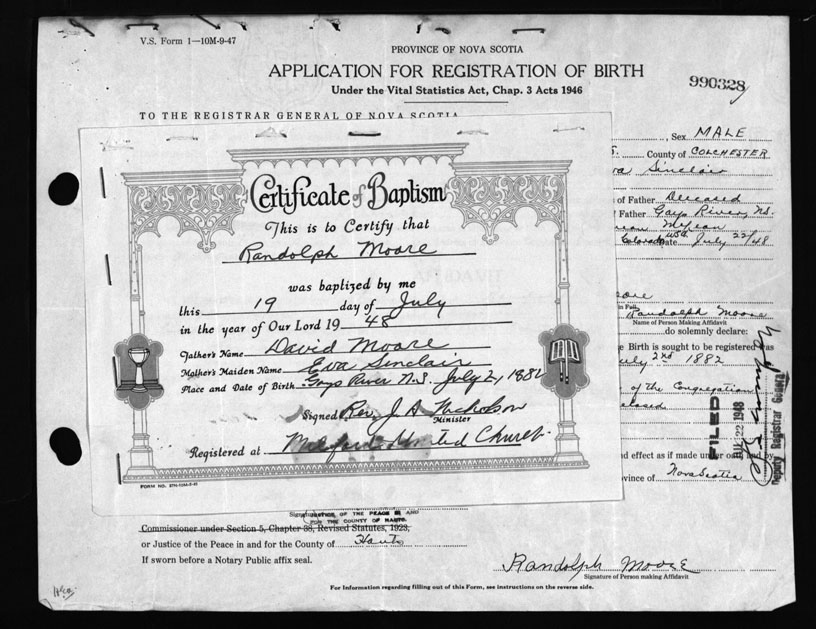 V.S. Form 1—10M-9-47
PROVINCE OF NOVA SCOTIA
APPLICATION FOR REGISTRATION OF BIRTH
990328
Under the Vital Statistics Act, Chap. 3 Acts 1946
TO THE REGISTRAR GENERAL OF NOVA SCOTIA
, Sex MALE
County of COLCHESTER
va Sinclair
of Father Deceased
Father Gays River, N.S.
Colorado USA ate July 22/48
Certificate of Baptism
This is to Certify that
Randolph Moore
was baptized by me
this 19 day of July
in the year of Our Lord 19 48
Father's Name David Moore
Mother's Maiden Name Eva Sinclair
Place and Date of Birth Gays River N.S. July 2, 1882
Signed Rev. J. A. Nicholson
Minister
Registered at Milford United Church
FORM NO.
oore
Randolph Moore
Name of Person Making Affidavit
do solemnly declare:
e Birth is sought to be registered was
uly 2nd 1882
of the Congregation
eased
FILED
JUL 22 1948
Deputy Registrar General
nd effect as if made under oath and by
vince of Nova Scotia
JUSTICE OF THE PEACE IN AND
FOR THE COUNTY OF HANTS
Commissioner under Section 5, Chapter 38, Revised Statutes, 1923,
or Justice of the Peace in and for the County of Hants
If sworn before a Notary Public affix seal.
Randolph Moore
Signature of Person making Affidavit
For Information regarding filling out of this Form, see instructions on the reverse side.